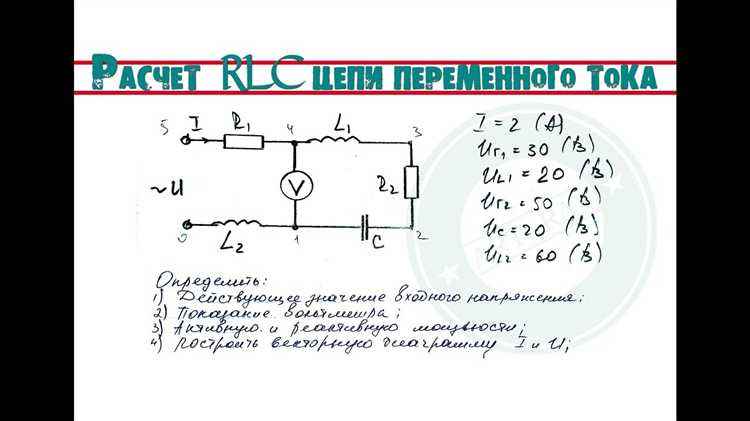 Расчет RLC цепи переменного тока
5 I R1 4 L1 3
~U V R2
0 L2 1 C 2
I = 2 (A)
Ur1 = 30 (В)
UL1 = 20 (В)
Ur2 = 50 (В)
Uc = 20 (В)
UL2 = 60 (В)
Определить:
1) Действующее значение входного напряжения;
2) Показание вольтметра;
3) Активную и реактивную мощности;
4) Построить векторную диаграмму I и U;